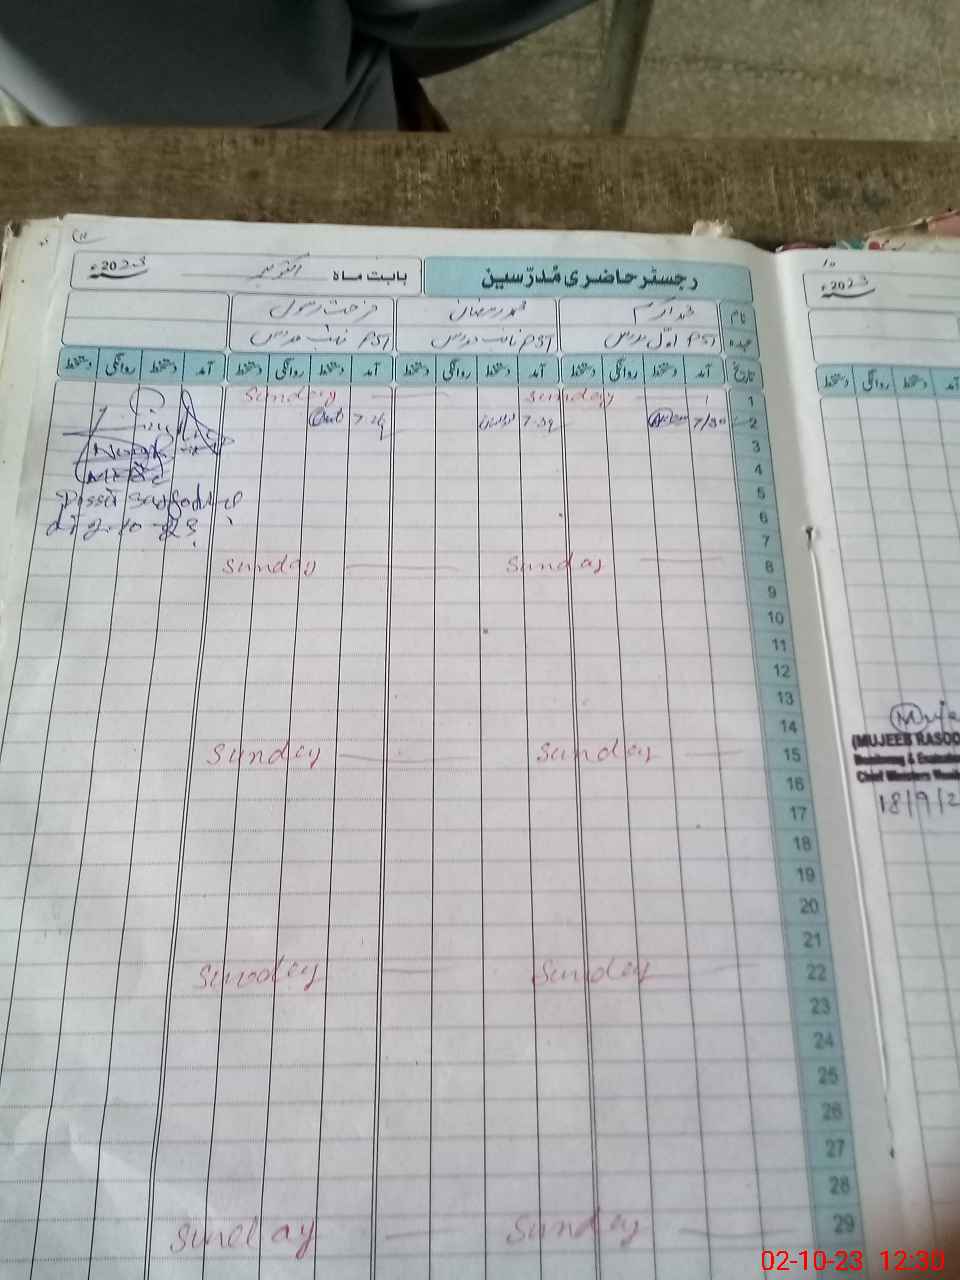 رجسٹر حاضری مُدرّسین
بابت ماہ اکتوبر
2023ء
نام
محمد رمضان
فرحت رسول
عہدہ
PST اوّل مدرس
PST نائب مدرس
PST نائب مدرس
تاریخ آمد دستخط روانگی دستخط آمد دستخط روانگی دستخط آمد دستخط روانگی دستخط آمد دستخط روانگی دستخط
1 Sunday Sunday
2 7/30
3
4
5
6
7
8 Sunday Sunday
9
10
11
12
13
14
15 Sunday Sunday
16
17
18
19
20
21
22 Sunday Sunday
23
24
25
26
27
28
29 Sunday Sunday
2.10-23
2023ء
دستخط روانگی دستخط آمد
(MUJEEB RASOO
Monitoring & Evaluatio
Chief Ministers Moni
18/9/2
02-10-23 12:30